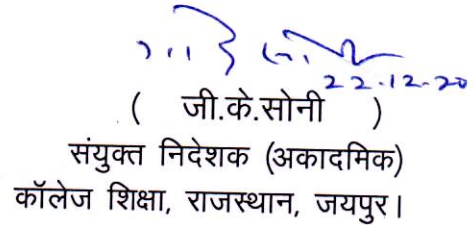 22-12-20
( जी.के.सोनी )
संयुक्त निदेशक (अकादमिक)
कॉलेज शिक्षा, राजस्थान, जयपुर।